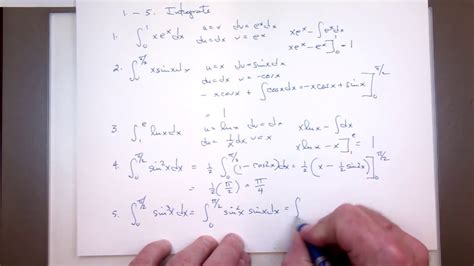 1 – 5. Integrate
1. ∫₀¹ xeˣdx u = x dv = eˣdx xeˣ – ∫eˣdx
du = dx v = eˣ xeˣ – eˣ]₀¹ = 1
2. ∫₀^π/2 x sinxdx u = x dv = sinxdx
du = dx v = -cosx
- xcosx + ∫cosxdx = -xcosx + sinx]₀^π/2
= 1
3 ∫₁ᵉ lnxdx u = lnx dv = dx xlnx – ∫dx
du = 1/x dx v = x xlnx – x]₁ᵉ = 1
4. ∫₀^π/2 sin²xdx = ½ ∫₀^π/2 (1 – cos2x)dx = ½ (x – ½ sin2x)]₀^π/2
= ½ (π/2) = π/4
5. ∫₀^π/2 sin³xdx = ∫₀^π/2 sin²x sinxdx = ∫